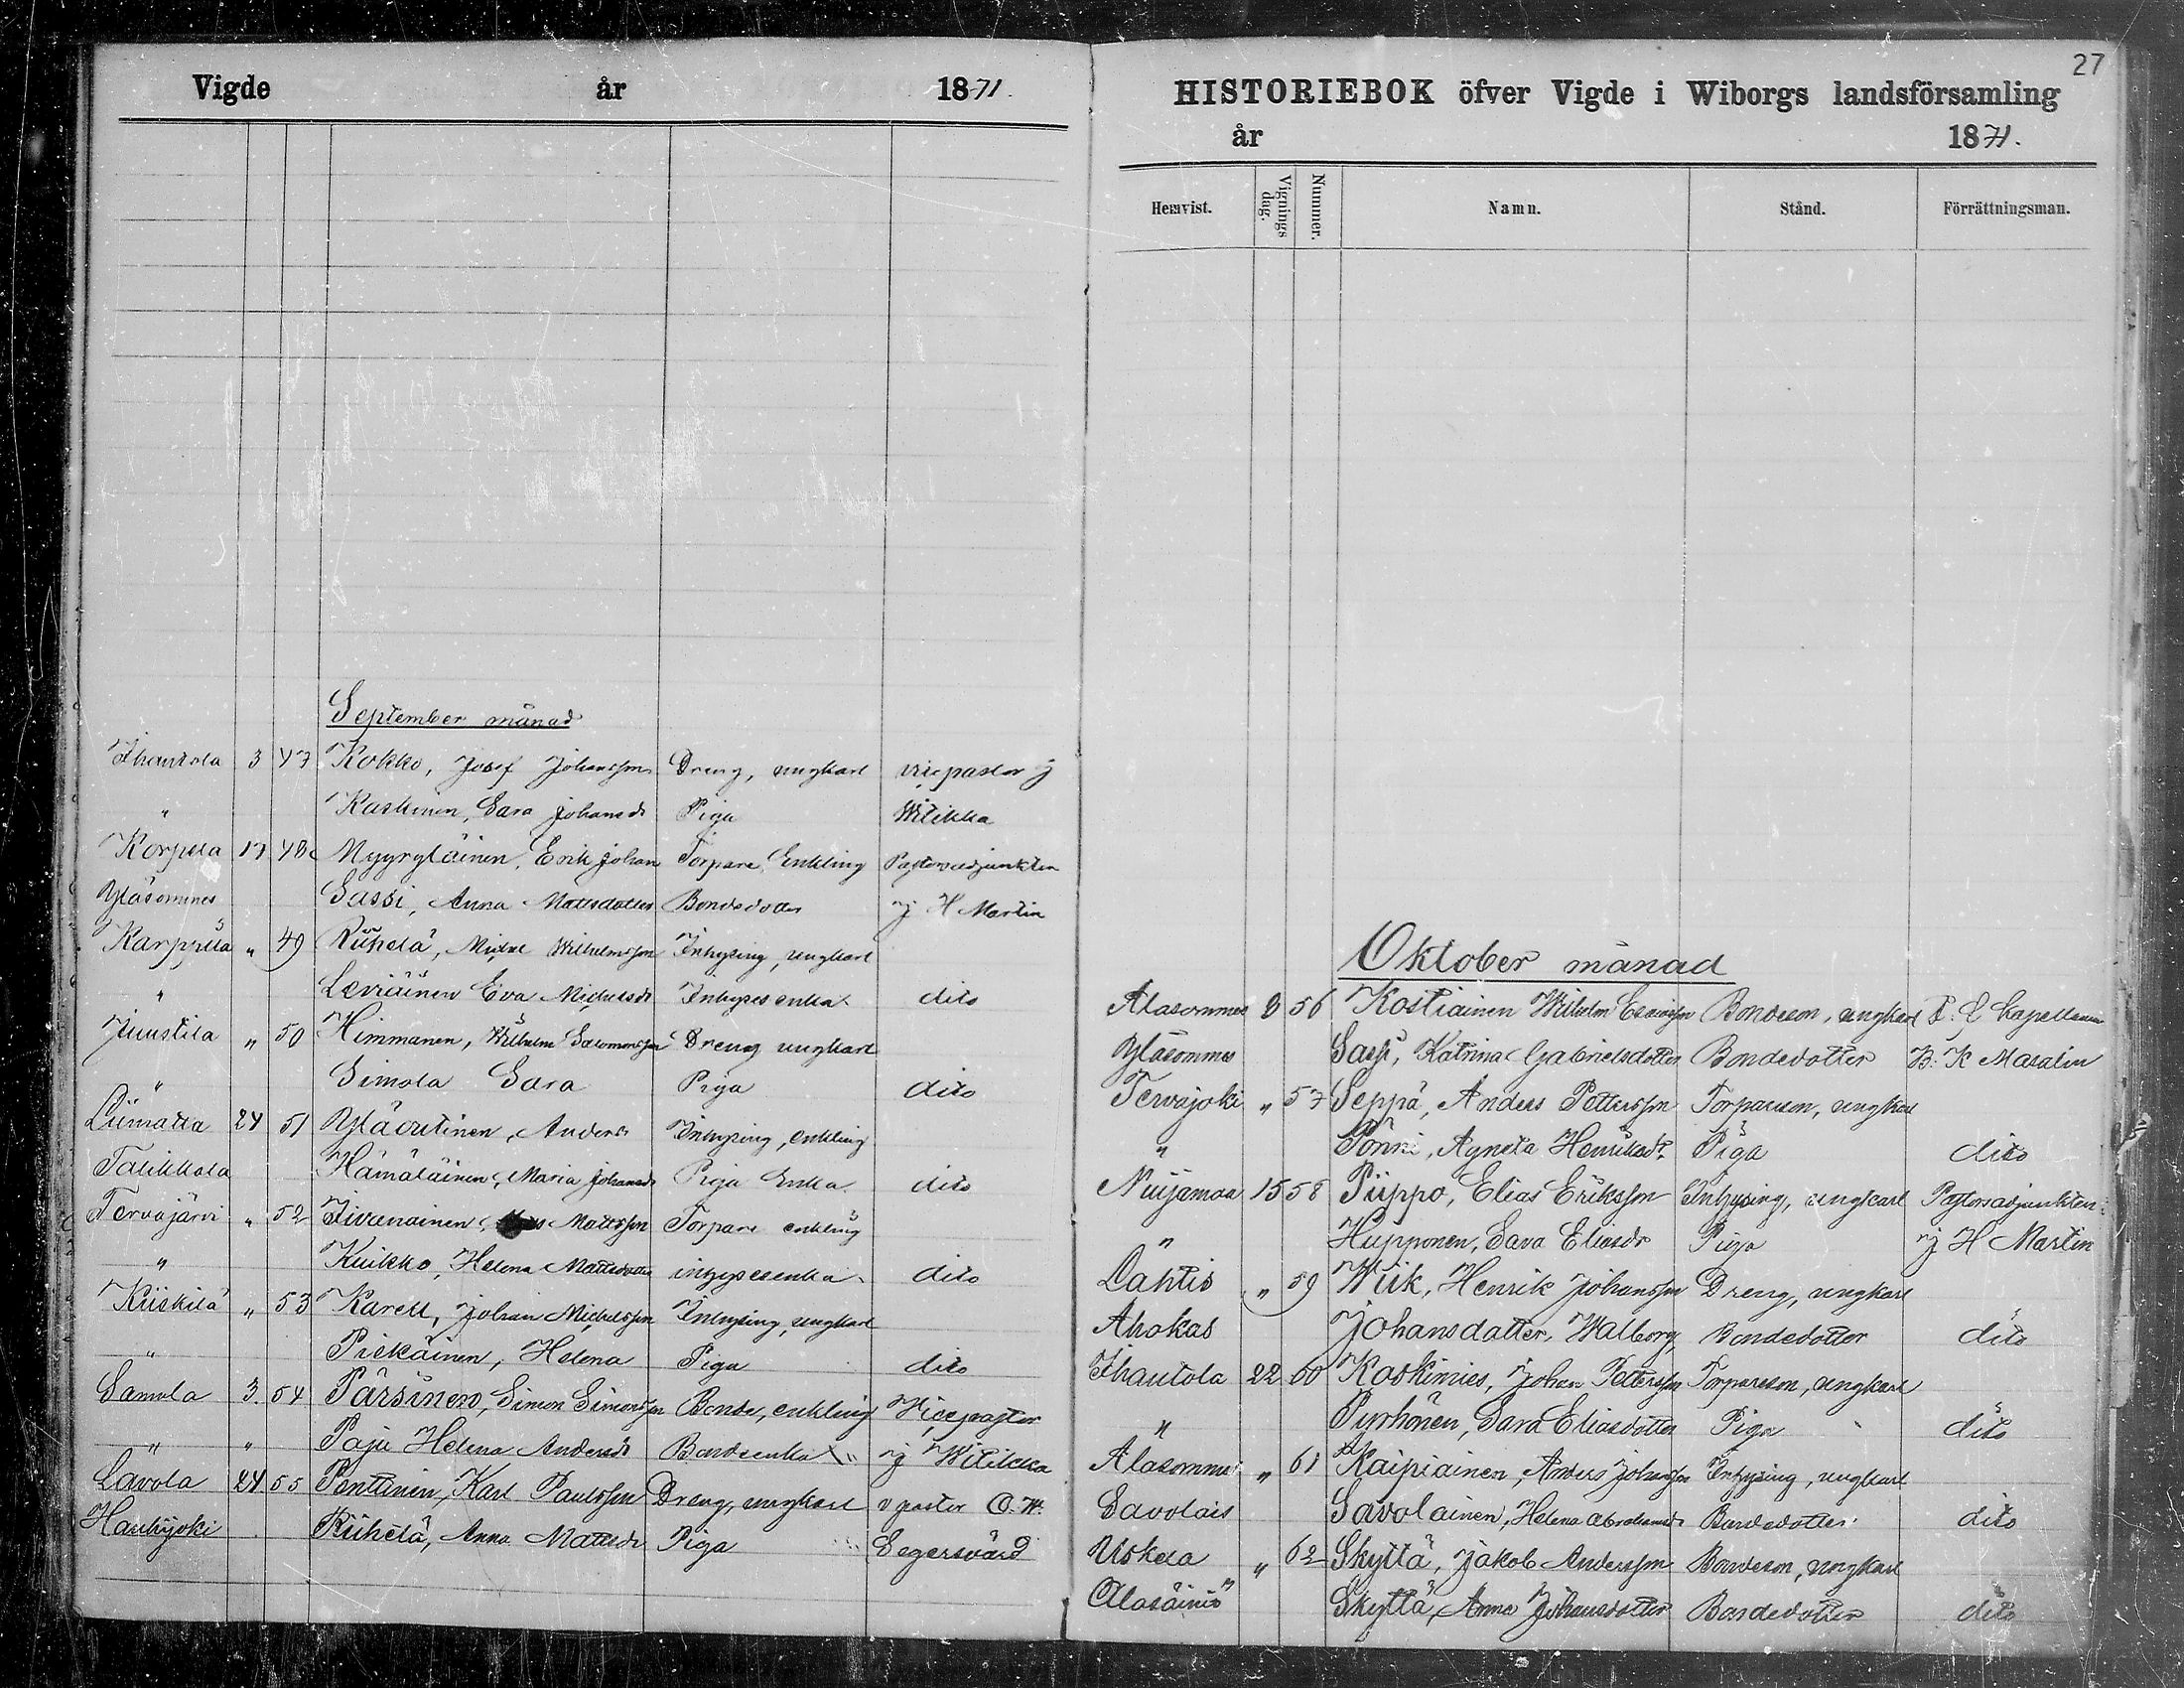 Vigde år 1871.
September månad
Ihantola 3 47 Kokko, Josef Johansson Dreng, ungkarl vicepastor J
" Kaskinen, Sara Johansdr Piga Witikka
Korpela 17 48 Myyryläinen, Erik Johan Torpare Enkling Pastorsadjunkten
Yläsommes Sassi, Anna Mattsdotter Bondedotter J H Martin
Karppila " 49 Riihelä, Michel Wilhelmsson Inhysing, ungkarl
" Leviäinen Eva Michelsdr Inhyses enka dito
Juustila " 50 Himmanen, Wilhelm Salomonsson Dreng ungkarl
" Simola Sara Piga dito
Liimatta 24 51 Yläoutinen, Anders Inhysing, enkling
Talikkala Hämäläinen, Maria Johansdr Piga Enka dito
Tervajärvi " 52 Iivanainen, Mattsson Torpare enkling
" Kiukko, Helena Mattsdotter inhysesenka dito
Kiiskilä " 53 Karell, Johan Michelsson Inhysing, ungkarl
" Piekäinen, Helena Piga dito
Samola 3. 54 Pärsinen, Simon Simonsson Bonde, enkling Vicepastor
" " Paju Helena Andersdr Bondeenka J Witikka
Lavola 24 55 Penttinen, Karl Paulsson Dreng, ungkarl v pastor O. W.
Hanhijoki Riihelä, Anna Mattsdr Piga Segersvärd
27
HISTORIEBOK öfver Vigde i Wiborgs landsförsamling
år 1871.
Hemvist. Vignings dag. Nummer. Namn. Stånd. Förrättningsman.
Oktober månad
Alasommes 8 56 Kostiainen Wilhelm Esaiasson Bondeson, ungkarl T. f Kapellanen
Yläsommes Sassi, Katrina Gabrielsdotter Bondedotter B. K Masalin
Tervajoki " 57 Seppä, Anders Pettersson Torpareson, ungkarl
" Pönni, Agneta Henriksdr Piga dito
Nuijamaa 15 58 Piippo, Elias Eriksson Inhysing, ungkarl Pastorsadjunkten
" Hupponen, Sava Eliasdr Piga J H Martin
Lahtis " 59 Wiik, Henrik Johansson Dreng, ungkarl
Ahokas Johansdotter, Walborg Bondedotter dito
Ihantola 22 60 Kaskimies, Johan Pettersson Torpareson, ungkarl
" Pyrhönen, Sara Eliasdotter Piga dito
Alasommes " 61 Kaipiainen, Anders Johansson Inhysing, ungkarl
Savolais Savolainen, Helena Abrahamsdr Bondedotter dito
Uskela " 62 Skyttä, Jakob Andersson Bondeson, ungkarl
Alasäiniö Skyttä, Anna Johansdotter Bondedotter dito